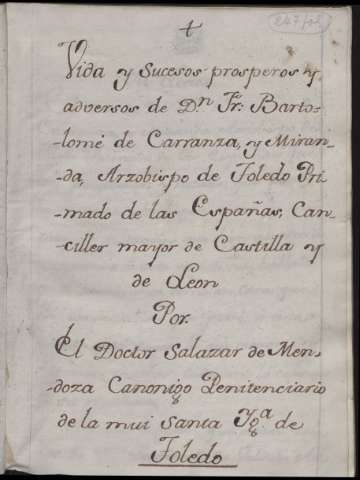 +
Vida y Sucesos prosperos y
adversos de Dn Fr: Barto-
-lomé de Carranza, y Miran-
-da, Arzobispo de Toledo Pri
-mado de las Españas, Can-
-ciller mayor de Castilla y
de Leon
Por.
El Doctor Salazar de Men-
-doza Canonigo Penitenciario
de la mui Santa Yga de
Toledo